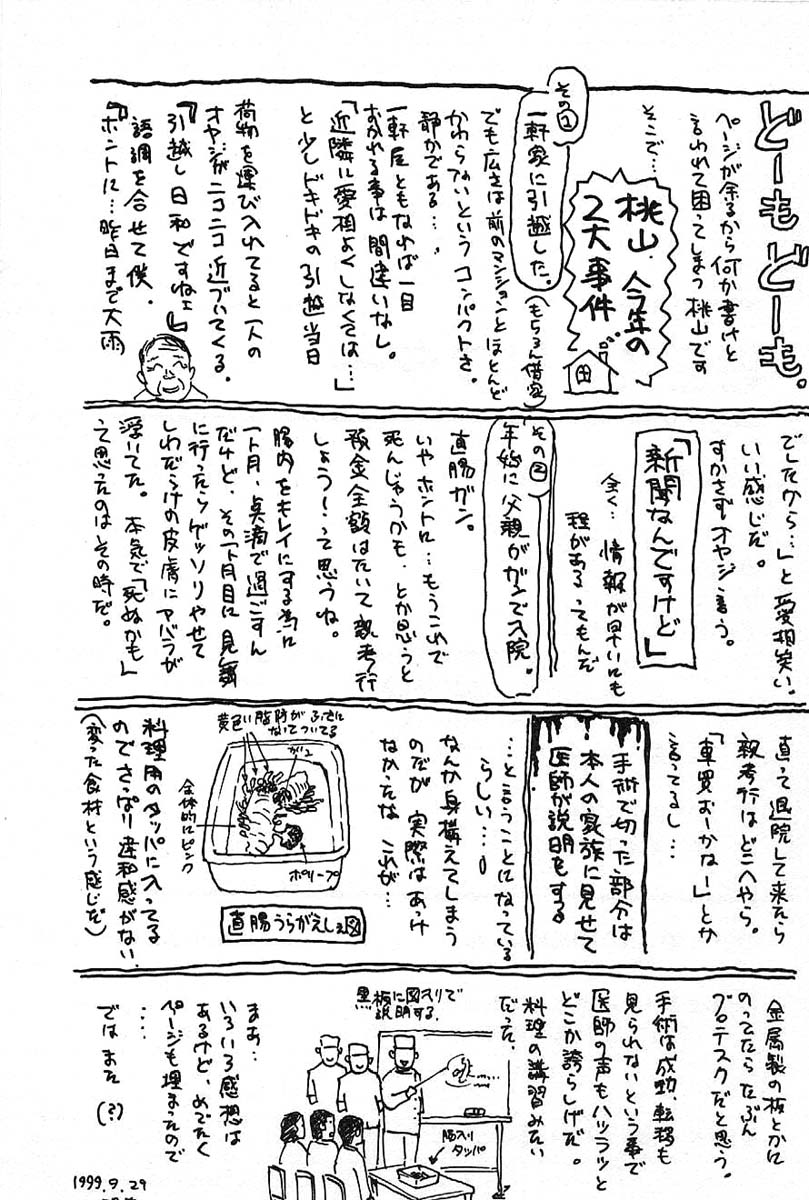 どーもどーも。
ページが余るから何か書けと
言われて困ってしまう桃山です
そこで…
桃山、今年の
2大事件
その1
一軒家に引越した。
(もちろん借家)
でも広さは前のマンションとほとんど
かわらないというコンパクトさ。
静かである…。
一軒屋ともなれば一目
おかれる事は間違いなし。
「近隣に愛想よくしなくては…」
と少しドキドキの引越当日
荷物を運び入れてると一人の
オヤジがニコニコ近づいてくる。
『引越し日和ですねェ』
語調を合せて僕、
『ホントに…昨日まで大雨
でしたから…」と愛想笑い。
いい感じだ。
すかさずオヤジ言う。
「新聞なんですけど」
全く…情報が早いにも
程があるってもんだ
その2
年始に父親がガンで入院。
直腸ガン。
いやホントに…もうこれで
死んじゃうかも、とか思うと
預金全額はたいて親考行
しょう!って思うね。
腸内をキレイにする為に
一ト月、点滴で過ごすん
だけど、その一ト月目に見舞
に行ったらゲッソリやせて
しわだらけの皮膚にアバラが
浮いてた。本気で「死ぬかも」
って思ったのはその時だ。
直って退院して来たら
親考行はどこへやら。
「車買おーかなー」とか
言ってるし…
手術で切った部分は
本人の家族に見せて
医師が説明をする
…と言うことになっている
らしい…。
なんか身構えてしまう
のだが 実際はあっけ
なかったな これが…
黄色い脂肪がふさに
なってついてる
全体的にピンク
ポリープ
直腸うらがえしの図
料理用のタッパに入ってる
のでさっぱり違和感がない。
(変った食材という感じだ)
金属製の板とかに
のってたらたぶん
グロテスクだと思う。
手術は成功、転移も
見られないという事で
医師の声もハツラツと
どこか誇らしげだ。
料理の講習みたい
だった。
黒板に図入りで
説明する.
腸入り
タッパ
まぁ…
いろいろ感想は
あるけど、めでたく
ページも埋まったので
…
ではまた (?)
1999.9.29